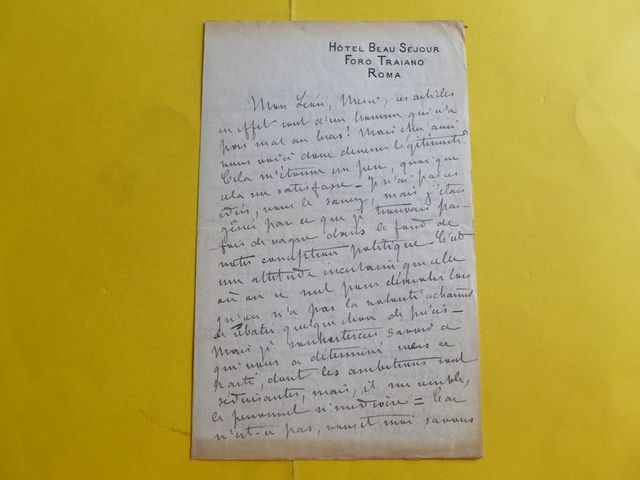 HÔTEL BEAU SÉJOUR
FORO TRAIANO
ROMA
Mon Léon, Merci, ces articles
en effet sont d'un homme qui n'a
pas mal au bras! Mais cher ami
vous voici donc devenu légitimiste
Cela m'étonne un peu, quoique
cela me satisfasse - Je n'ai pas ces
idées, vous le savez, mais j'étais
gêné par ce que je trouvais par-
fois de vague dans le fond de
votre conception politique - C'est
une attitude incertaine que celle
où on se met pour démolir lors
qu'on n'a pas la volonté acharnée
de rebâtir quelque chose de précis -
Mais je souhaiterais savoir ce
qui vous a déterminé vers ce
parti, dont les ambitions sont
séduisantes, mais, il me semble,
le personnel si médiocre = Car
n'est-ce pas, vous et moi savons